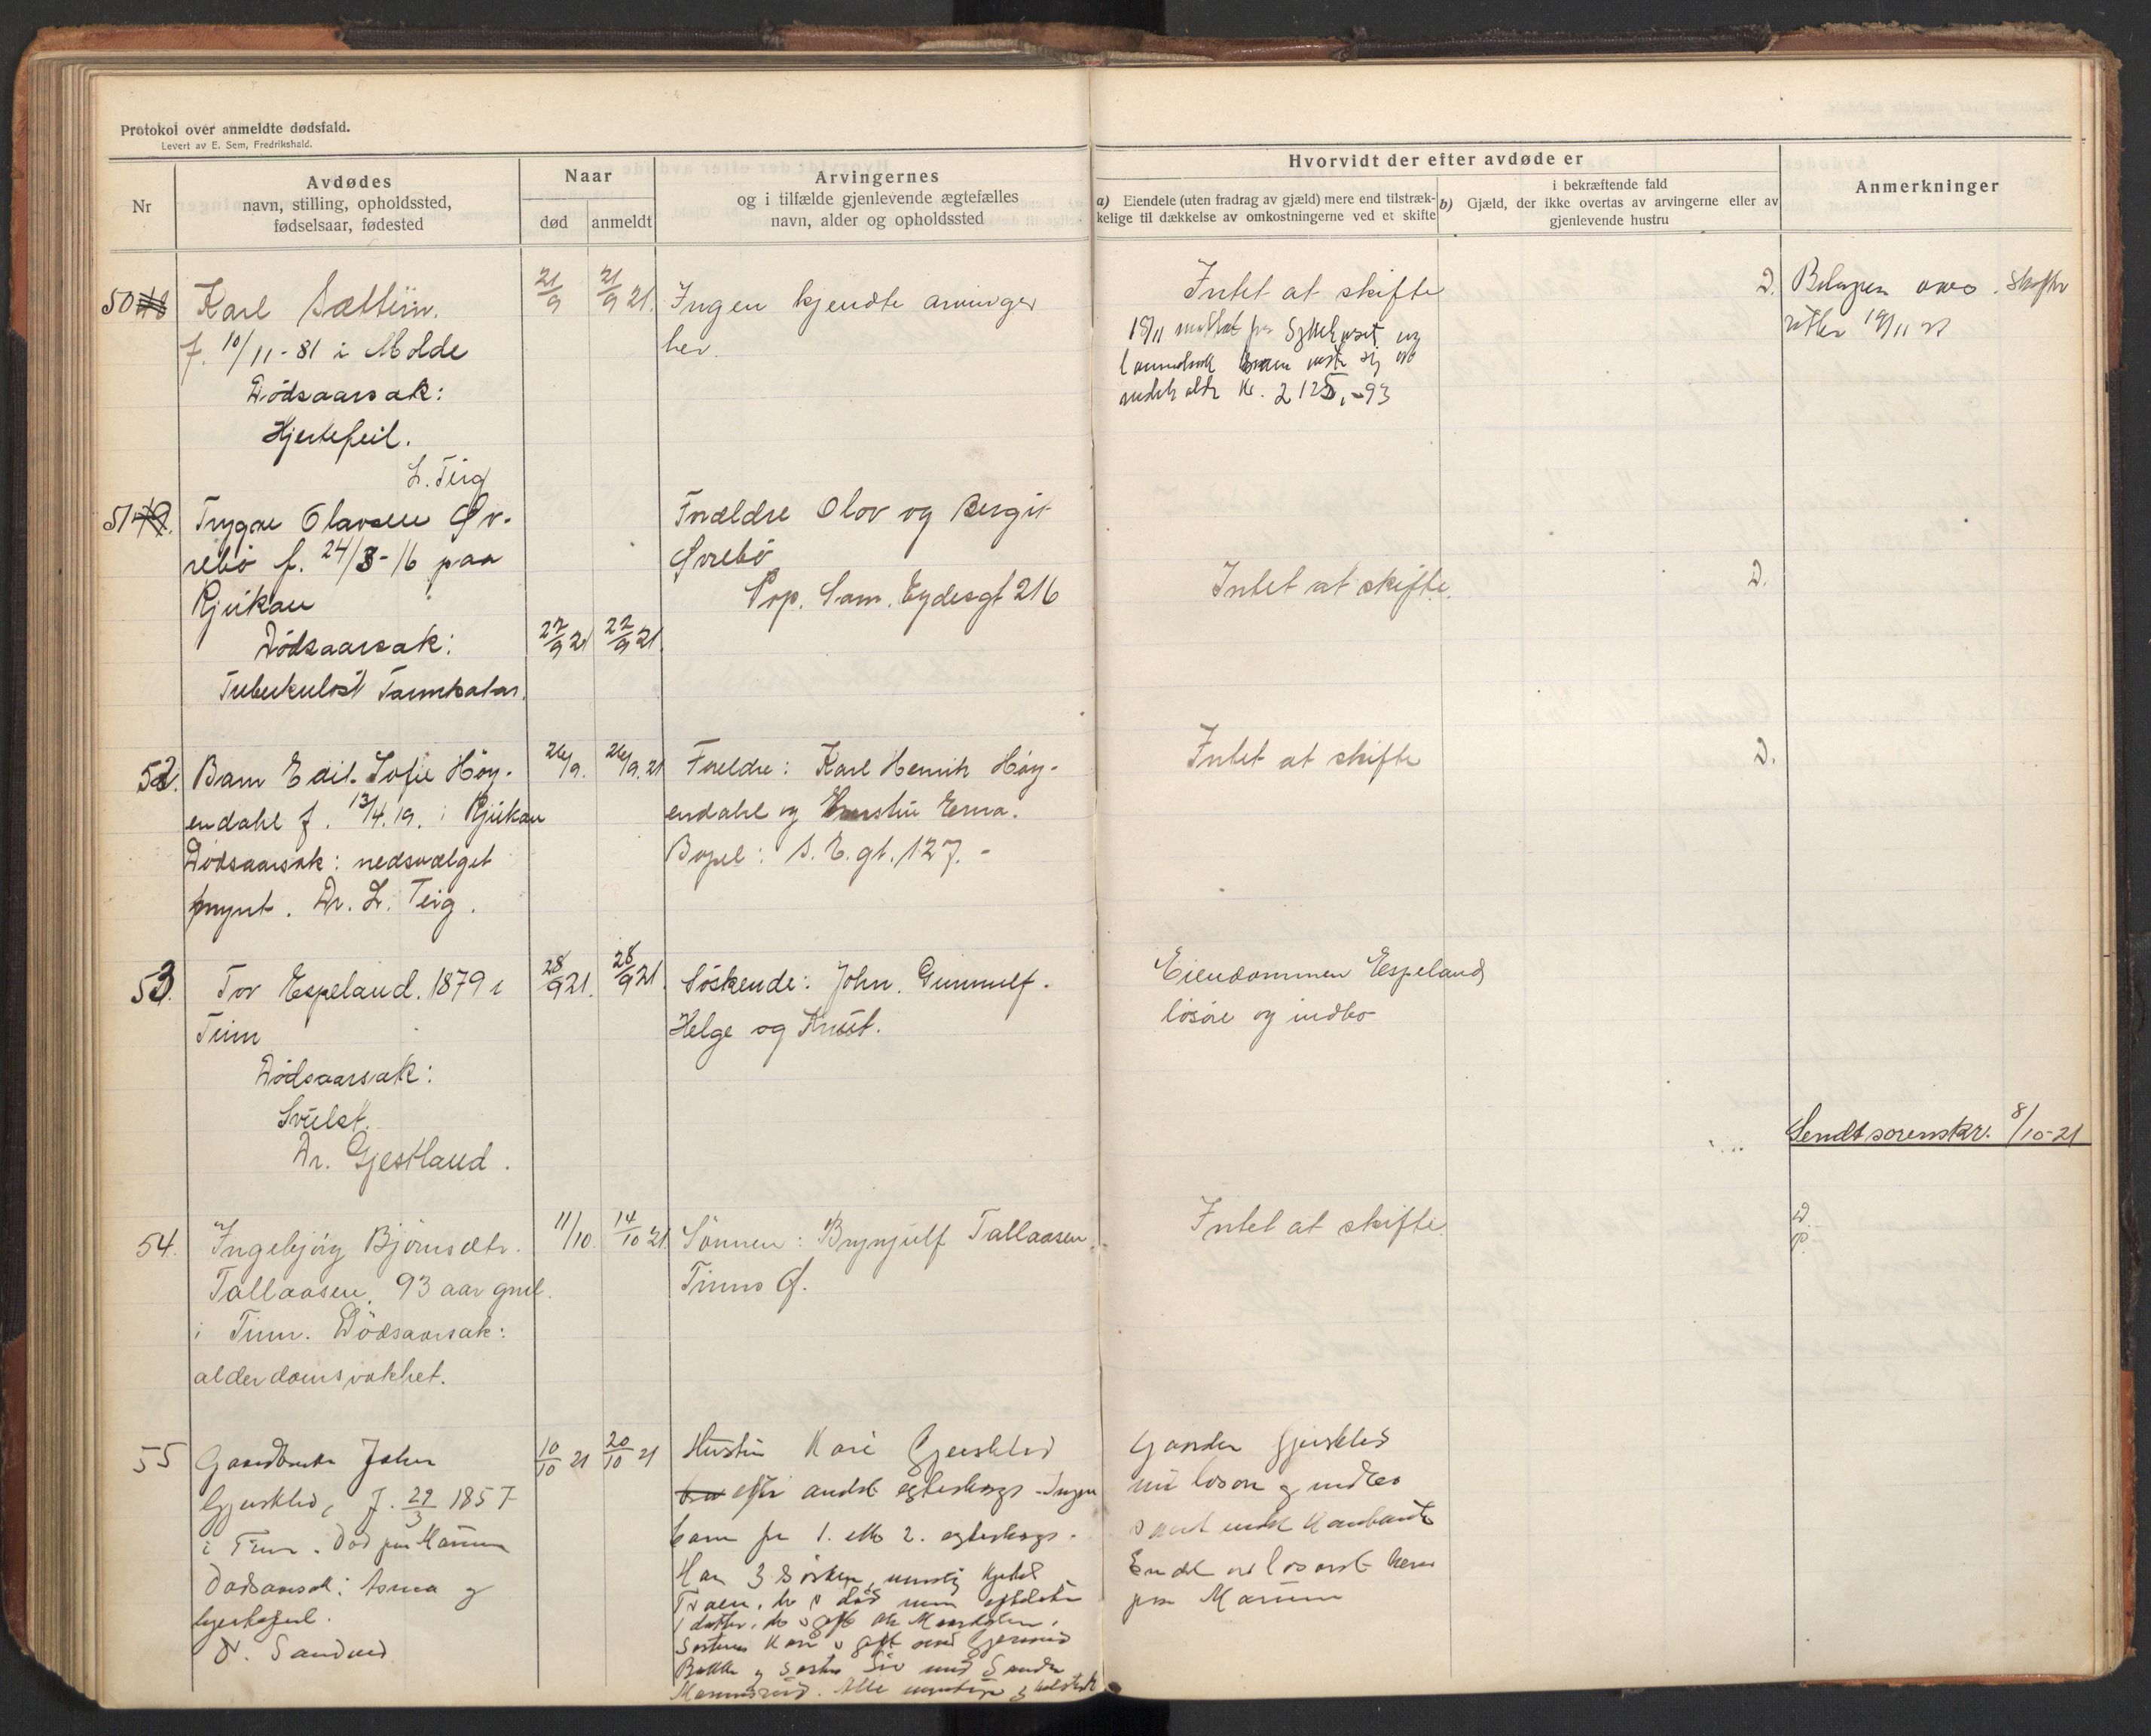 Protokol over anmeldte dødsfald.
Levert av E. Sem, Fredrikshald.
Nr
Avdødes
navn, stilling, opholdssted,
fødselsaar, fødested
Naar
død
anmeldt
Arvingernes
og i tilfælde gjenlevende ægtefælles
navn, alder og opholdssted
Hvorvidt der efter avdøde er
a) Eiendele (uten fradrag av gjæld) mere end tilstræk-
kelige til dækkelse av omkostningerne ved et skifte
i bekræftende fald
b) Gjæld, der ikke overtas av arvingerne eller av
gjenlevende hustru
Anmerkninger
50
Karl
f. 10/11-81 i Molde
Dødsaarsak:
Hjertefeil.
L. Teig
21/9
21/9 21.
Ingen kjendte arvinger
her.
Intet at skifte
15/11 fra Sykehuset og
Kr. 2125,-93
D.
19/11 21
51
Trygve Olavsen Øv-
rebö f. 24/8-16 paa
Rjukan
Dødsaarsak:
Tuberkuløst Tarmkatar.
22/9 21
22/9 21.
Forældre Olov og Bergit
Øvrebö
Sam. Eydesgt 216
Intet at skifte.
D.
52.
Barn Edit Sofie Höy-
endahl f. 13/4.19. i Rjukan
Dødsaarsak: nedsvælget
mynt. Dr. L. Teig.
26/9.
26/9.21
Foreldre: Karl Henrik Höy-
endahl og Hustru Erna.
Bopel: S. E. gt. 127. -
Intet at skifte
D.
53.
Tov Espeland. 1879 i
Tinn
Dødsaarsak:
Svulst.
Dr. Gjestland.
28/9 21.
28/9 21.
Söskende: John. Gunnulf.
Helge og Knut.
Eiendommen Espeland
lösöre og indbo
Sendt sorenskr. 8/10-21
54.
Ingebjörg Björnsdtr.
Tallaasen, 93 aar gml.
i Tinn. Dödsaarsak:
alderdomsvakhet.
11/10.
14/10 21
Sönnen: Brynjulf Tallaasen
Tinns Ø.
Intet at skifte
D.
55
Gaardbruker John
f. 29/3 1857
i Tinn. Död paa
Dødsaarsak: Astma og
hjertefeil.
Dr. Sandved
10/10 21
20/10 21
Hustru Kari
efter andet egteskap. Ingen
barn fra 1. eller 2. egteskap.
Har 3 sösken, nemlig
Kari er gift med
Bakke og Siv med
Alle myndige
Gaarden
med lösöre og indbo
samt
Endel lösöre
paa